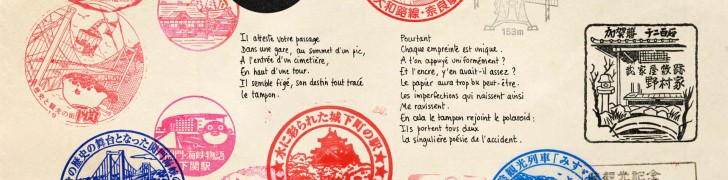 大和路線・奈良
153m
Il atteste votre passage
Dans une gare, au sommet d'un pic,
A l'entrée d'un cimetière,
En haut d'une tour.
Il semble figé, son destin tout tracé
le tampon.
Pourtant
Chaque empreinte est unique.
A t'on appuyé uniformément ?
Et l'encre, y'en avait-il assez ?
Le papier aura trop bu peut-être.
Les imperfections qui naissent ainsi
Me ravissent.
En cela le tampon rejoint le polaroid :
Ils portent tous deux
la singulière poésie de l'accident.
加賀藩 千二百石
武家屋敷跡
野村家
門・海峡物語
下関駅
の歴史の舞台となった関門
水に彩られた城下町の駅
観光列車「みす
観光記念